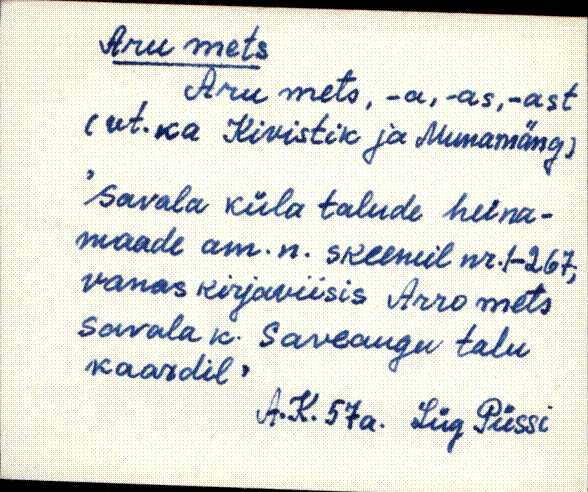 Aru mets
Aru mets, -a, -as, -ast
(vt. ka Kivistik ja Munamäng)
'Savala küla talude heina-
maade am. n. skeemil nr. 1-267,
vanas kirjaviisis Arro mets
Savala k. Saveaugu talu
kaardil'
A.K. 57a. Lüg Püssi